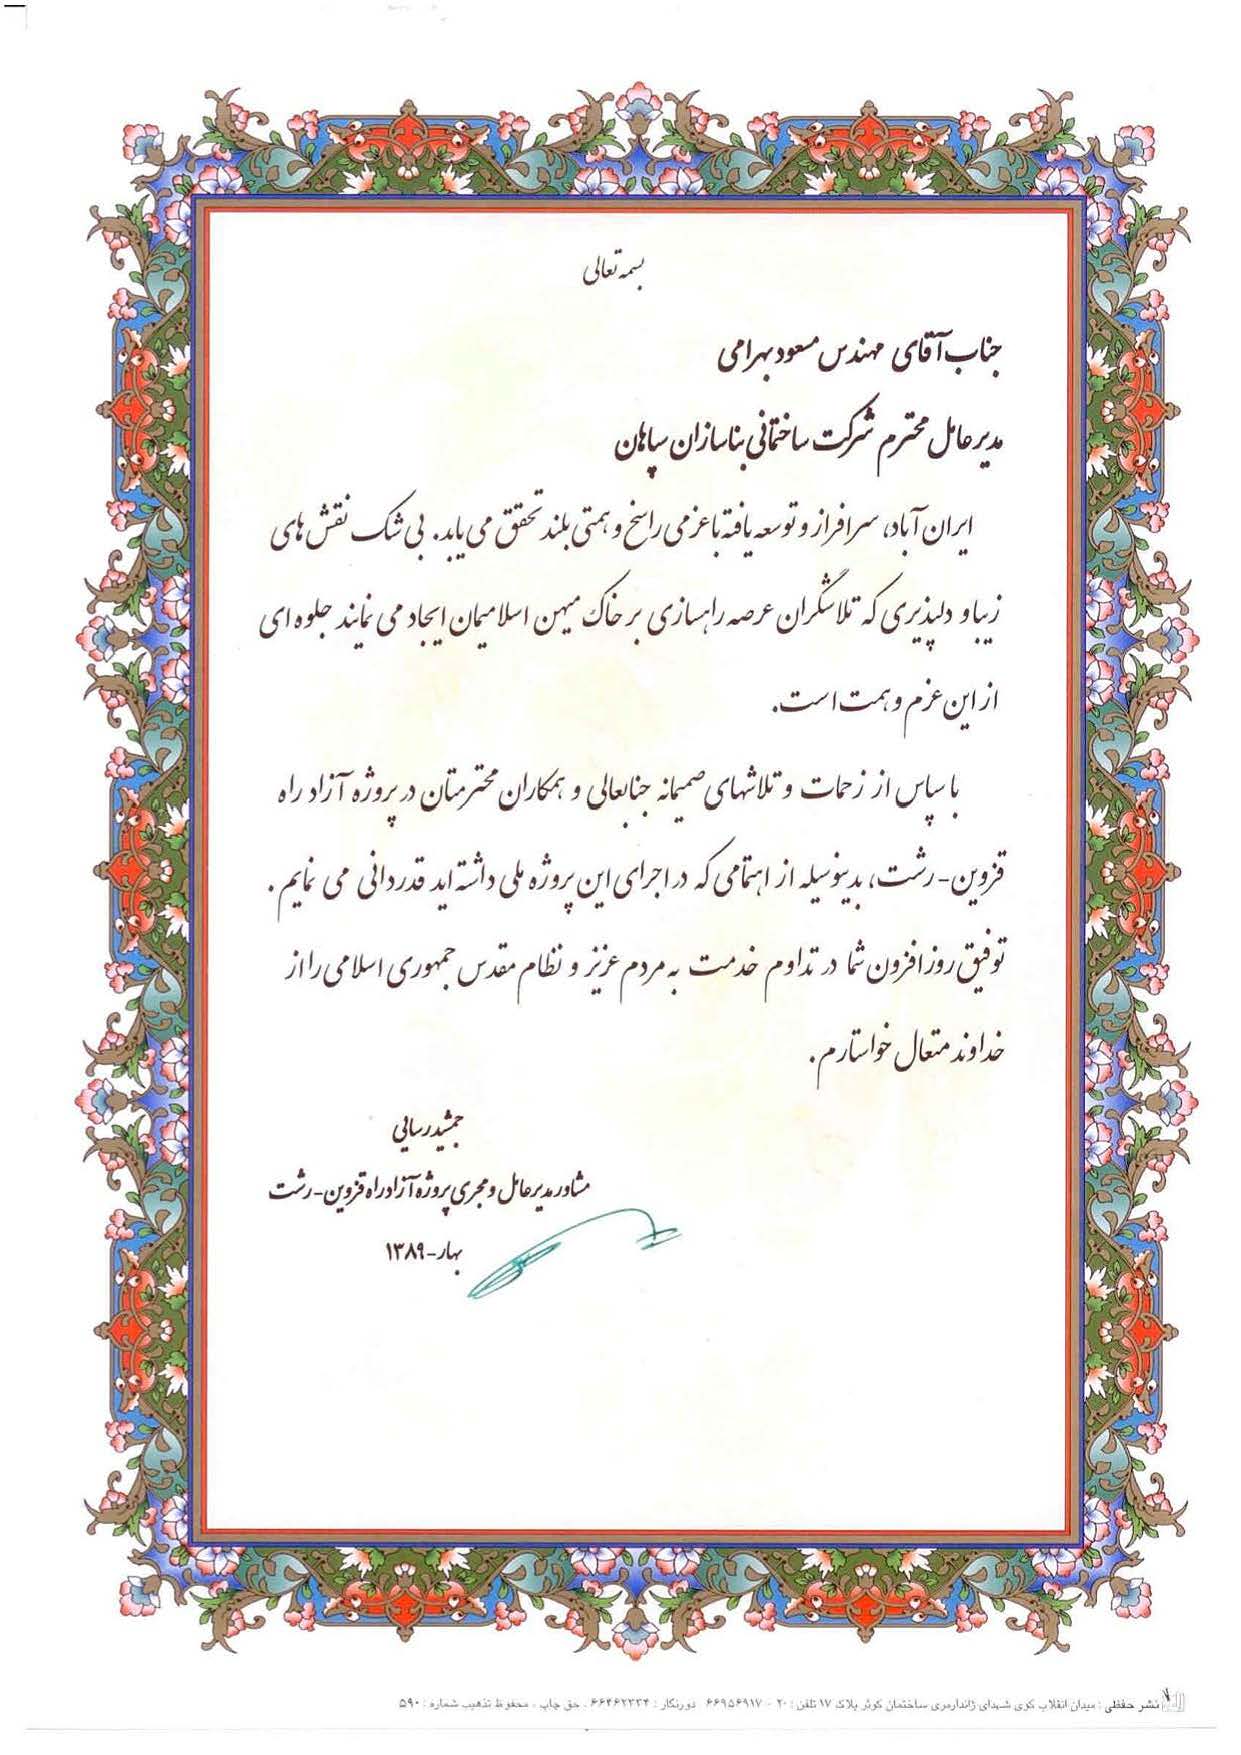 بسمه تعالی
جناب آقای مهندس مسعود بهرامی
مدیر عامل محترم شرکت ساختمانی بناسازان سپاهان
ایران آباد، سرافراز و توسعه یافته با عزمی راسخ و همتی بلند تحقق می یابد. بی شک نقش های
زیبا و دلپذیری که تلاشگران عرصه راهسازی بر خاک میهن اسلامیمان ایجاد می نمایند جلوه ای
از این عزم و همت است.
با سپاس از زحمات و تلاشهای صمیمانه جنابعالی و همکاران محترمتان در پروژه آزاد راه
قزوین-رشت، بدینوسیله از اهتمامی که در اجرای این پروژه ملی داشته اید قدردانی می نمایم.
توفیق روز افزون شما در تداوم خدمت به مردم عزیز و نظام مقدس جمهوری اسلامی را از
خداوند متعال خواستارم.
جمشید رسایی
مشاور مدیر عامل و مجری پروژه آزاد راه قزوین-رشت
بهار-۱۳۸۹
نشر حفظی : میدان انقلاب کوی شهدای ژاندارمری ساختمان کوثر پلاک ۱۷ تلفن : ۲۰ - ۶۶۹۵۶۹۱۷ دورنگار : ۶۶۴۶۲۳۳۴ ، حق چاپ ، محفوظ تذهیب شماره : ۵۹۰